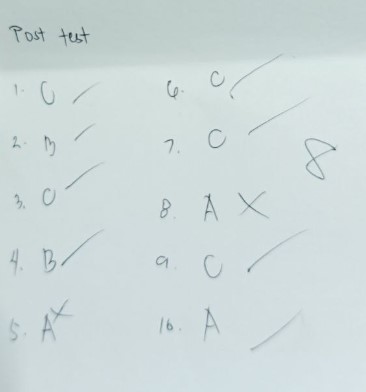 Post test
1. C
2. B
3. C
4. B
5. A
6. C
7. C
8. A
9. C
10. A
8